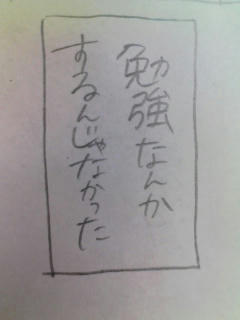 勉強なんか
するんじゃなかった